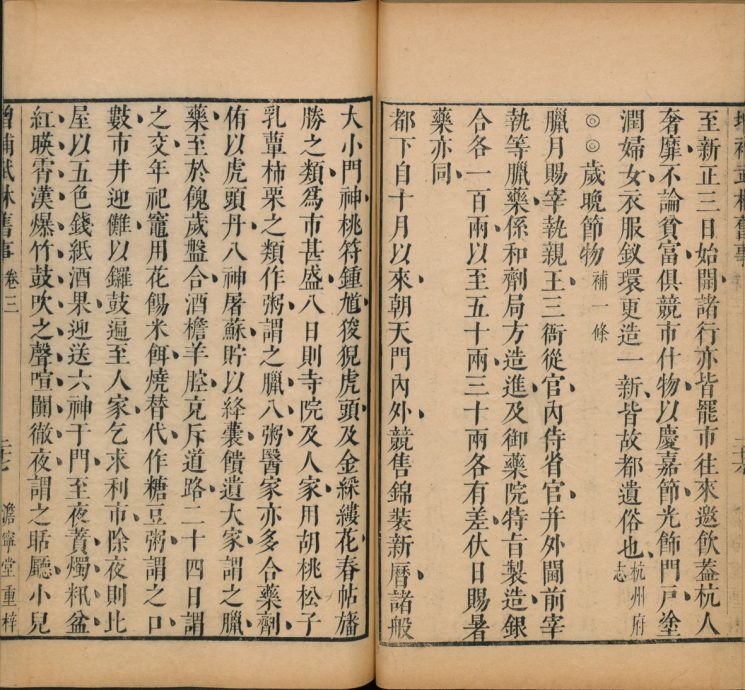 至新正三日始開諸行亦皆罷市往來邀飲葢杭人
奢靡不論貧富俱競市什物以慶嘉節光飾門戸塗
潤婦女衣服釵環更造一新皆故都遺俗也杭州府志
◎◎歲晚節物補一條
臘月賜宰執親王三衙從官內侍省官幷外閫前宰
執等臘藥係和劑局方造進及御藥院特旨製造銀
合各一百兩以至五十兩三十兩各有差伏日賜暑
藥亦同
都下自十月以來朝天門內外競售錦裝新曆諸般
大小門神桃符鍾馗狻猊虎頭及金綵縷花春帖旛
勝之類爲市甚盛八日則寺院及人家用胡桃松子
乳蕈柿栗之類作粥謂之臘八粥醫家亦多合藥劑
侑以虎頭丹八神屠蘇貯以絳囊饋遺大家謂之臘
藥至於餽歲盤合酒檐羊腔充斥道路二十四日謂
之交年祀竈用花餳米餌燒替代作糖豆粥謂之口
數市井迎儺以鑼鼓遍至人家乞求利市除夜則比
屋以五色錢紙酒果迎送六神于門至夜蕡燭籸盆
紅暎霄漢爆竹鼓吹之聲喧闐徹夜謂之聒廳小兒
增補武林舊事 卷三 澹寧堂重梓